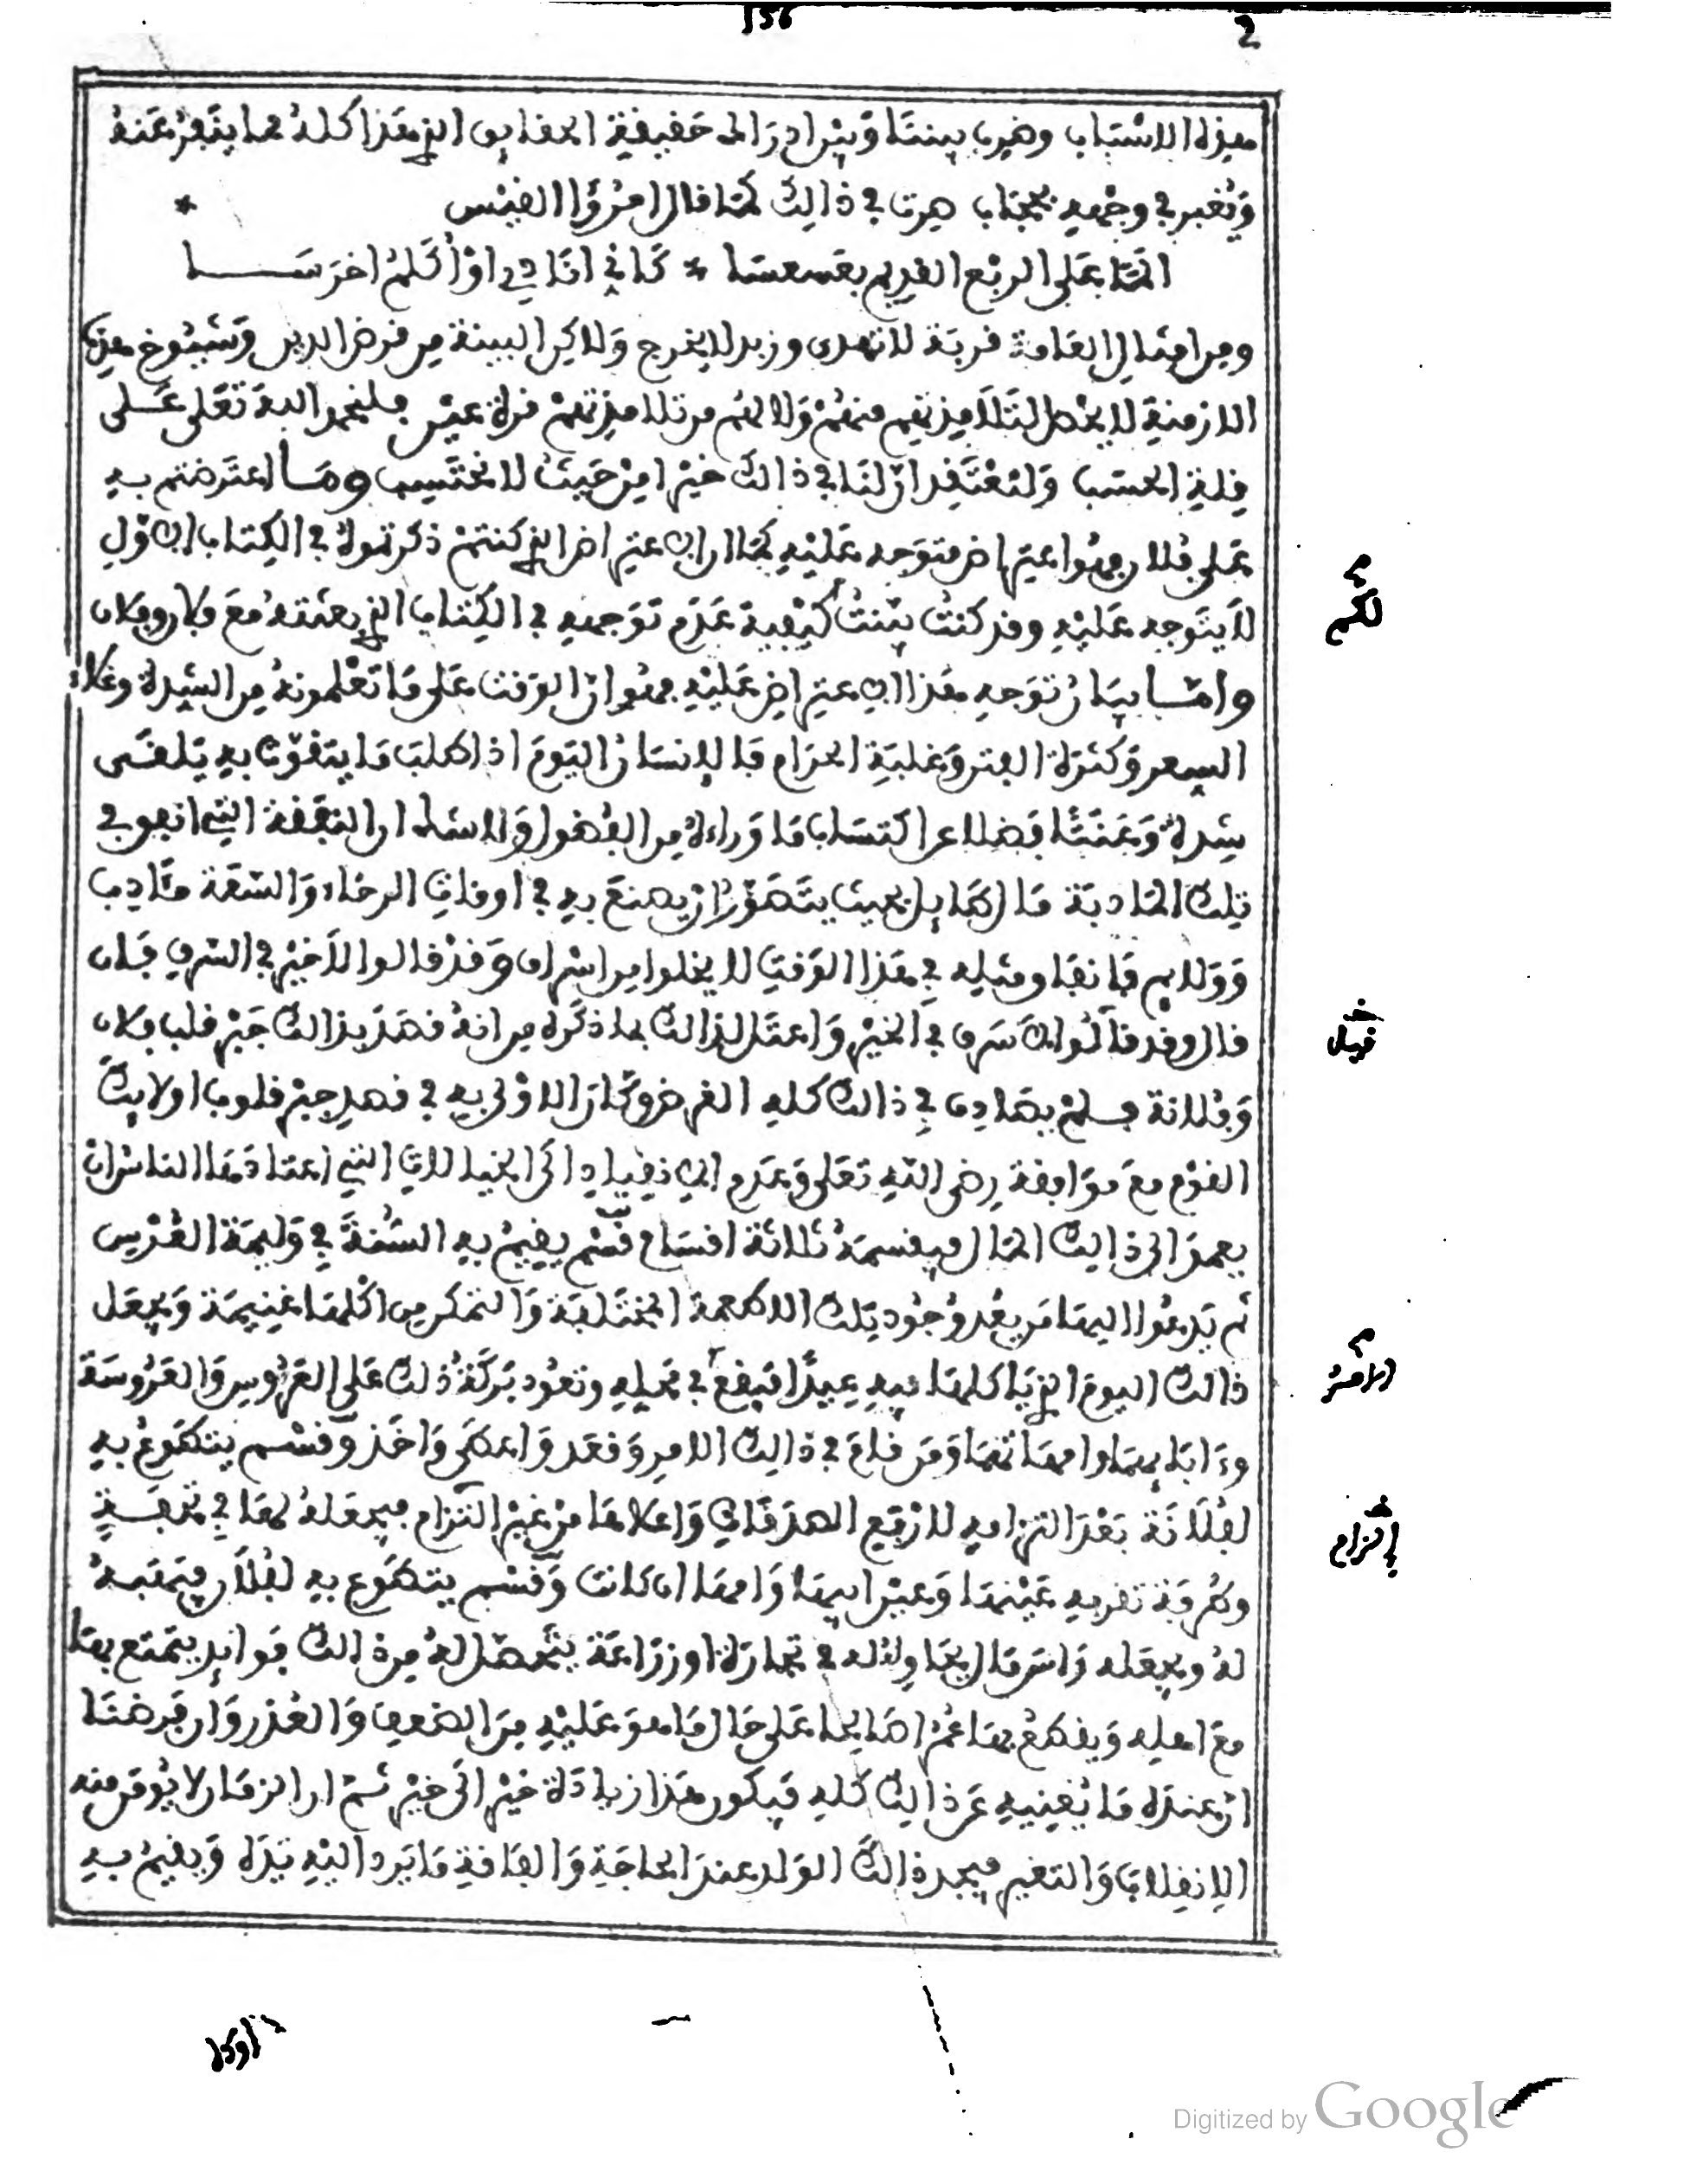 156
2
هذه الاسباب وضرب بيننا وبين ادراك حقيقة الحقايق الذي هذا كله مما يتفرع عنه
وتغبر في وجهه بحجاب صرت في ذالك كما قال امرؤا القيس *
المّا على الربع القديم بعسعسا * كاني انادي او أكلم اخرسا
ومن امثال العامة قربة لا تهدى وزبد لا يخرج ولاكن البينة من فرض الدين وشيوخ هذه
الازمنة لا يحصل لتلاميذتهم منهم ولا لهم من تلاميذتهم قرة عين فلنحمد الله تعلى على
قلة الحسب ولنعتقد ان لنا في ذالك خيرا من حيث لا نحتسب وما اعترضتم به
على فلان فهو اعتراض متوجه عليه كما ان الاعتراض الذي كنتم ذكرتموه في الكتاب الاول
لا يتوجه عليه وقد كنت بينت كيفية عدم توجهه في الكتاب الذي بعثته مع فلان وفلان
واما بيان توجه هذا الاعتراض عليه فهو ان الوقت على ما تعلمونه من الشدة وغلاء
السعر وكثرة الفتن وغلبة الحرام فالانسان اليوم اذا طلب ما يتقوت به يلقى
شدة وعنتا فضلا عن اكتساب ما وراءه من الفضول ولا شك ان النفقة التي انفق في
تلك المادبة مال طايل بحيث يتصور ان يصنع به في اوقات الرخاء والسعة مئادب
وولايم فانفاق مثله في هذا الوقت لا يخلوا من اسراف وقد قالوا لا خير في السرف فان
قال وقد قالوا لا سرف في الخير واعتل لذالك بما ذكره من انه قصد بذالك جبر قلب فلان
وفلانة فلم يصادف في ذالك كله الغرض وكان الاولى به في قصد جبر قلوب اولائك
القوم مع موافقة رضى الله تعلى وعدم الانقياد الى الخيالات التي اعتادها الناس ان
يعمد الى ذالك المال فيقسمه ثلاثة اقسام قسم يقيم به السنة في وليمة العرس
ثم يدعوا اليها من يعد وجود تلك الاطعمة المختلفة والتمكن من اكلها غنيمة ويجعل
ذالك اليوم الذي ياكلها فيه عيدا فيقع في محله وتعود بركة ذلك على العروس والعروسة
وءابايهما وامهاتهما ومن قام في ذالك الامر وقعد واعطى واخذ وقسم يتطوع به
لفلانة بعد التزامه لارفع الصدقات واعلاها من غير التزام فيجعله لها في تحفة
وطرفة تقر به عينها وعين ابيها وامها ان كانت وقسم يتطوع به لفلان فيهبه
له ويجعله راس مال يحاوله له في تجارة او زراعة يتحصل له من ذالك فوايد يتمتع بها
مع اهله ويقطع بها عمرا صالحا على حال ما هو عليه من الضعف والعذر وان فرضنا
ان عنده ما يغنيه عن ذالك كله فيكون هذا زيادة خير الى خير ثم ان الزمان لا يؤمن منه
الانقلاب والتغير فيجد ذالك الولد عند الحاجة والفاقة ما يرد اليه يده ويقيم به
لكم
قيل
الامر
إلتزام
اوكا
Digitized by Google